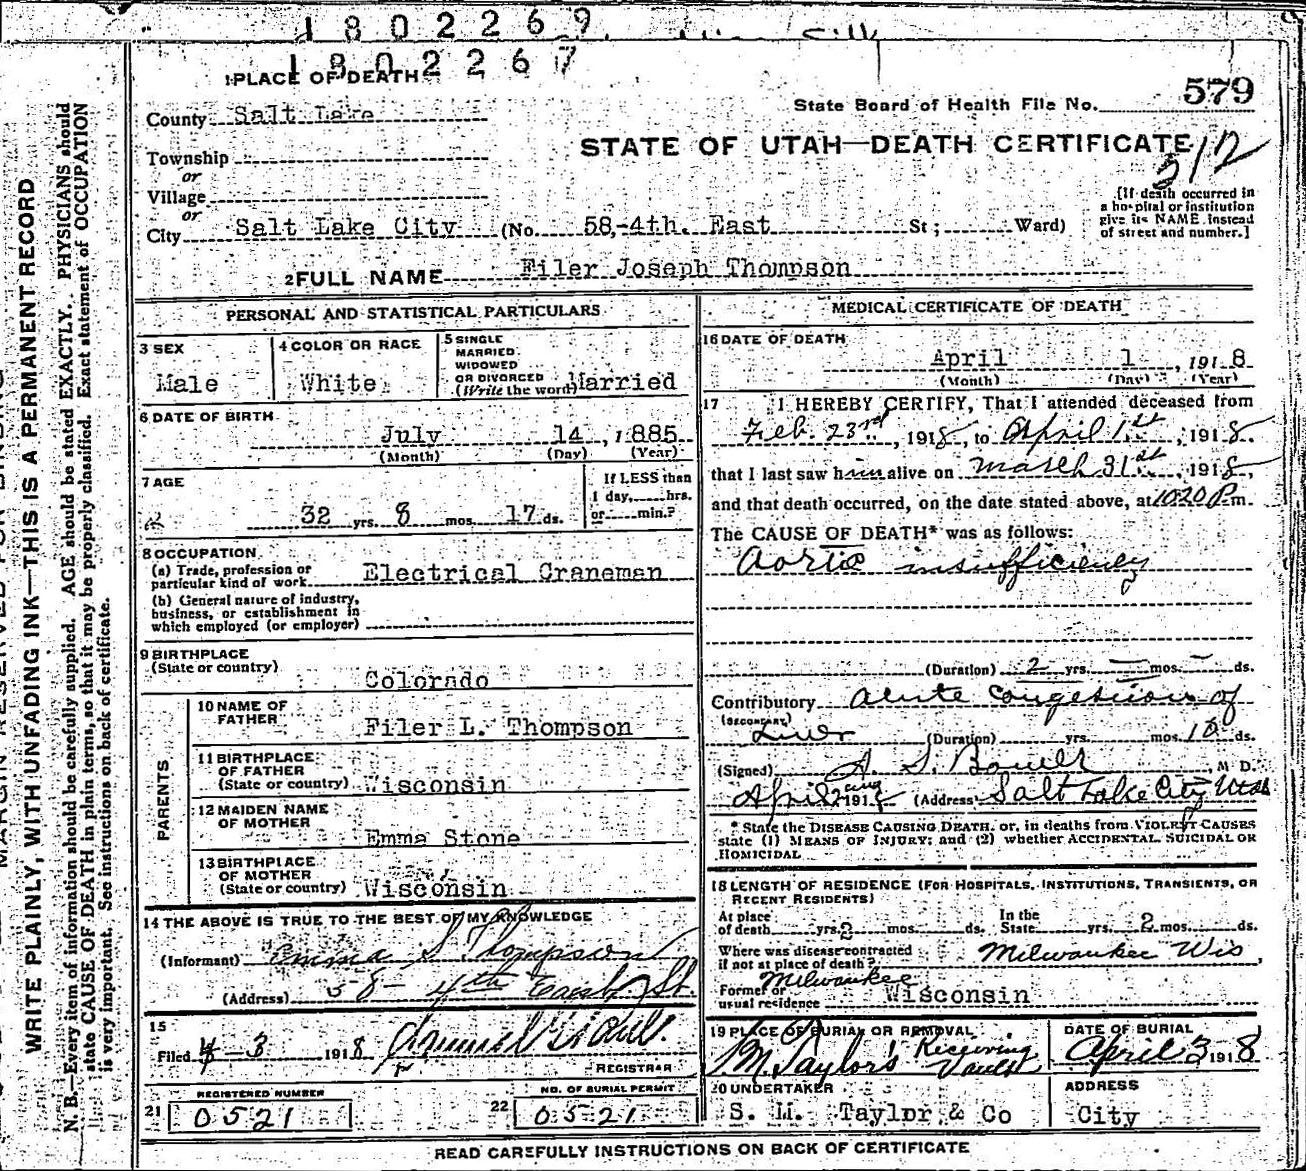 1802269
1802267
1 PLACE OF DEATH
State Board of Health File No. 579
County Salt Lake
STATE OF UTAH—DEATH CERTIFICATE
512
Township
or
Village
or
City Salt Lake City (No. 58,-4th. East St; Ward)
[If death occurred in
a hospital or institution
give its NAME instead
of street and number.]
2 FULL NAME Filer Joseph Thompson
PERSONAL AND STATISTICAL PARTICULARS
3 SEX
Male
4 COLOR OR RACE
White
5 SINGLE
MARRIED
WIDOWED
OR DIVORCED
(Write the word) Married
6 DATE OF BIRTH
July 14, 1885
(Month) (Day) (Year)
7 AGE
32 yrs. 8 mos. 17 ds.
If LESS than
1 day, hrs.
or min.?
8 OCCUPATION
(a) Trade, profession or
particular kind of work Electrical Craneman
(b) General nature of industry,
business, or establishment in
which employed (or employer)
9 BIRTHPLACE
(State or country)
Colorado
PARENTS
10 NAME OF
FATHER
Filer L. Thompson
11 BIRTHPLACE
OF FATHER
(State or country) Wisconsin
12 MAIDEN NAME
OF MOTHER
Emma Stone
13 BIRTHPLACE
OF MOTHER
(State or country) Wisconsin
14 THE ABOVE IS TRUE TO THE BEST OF MY KNOWLEDGE
(Informant) Emma S Thompson
(Address) 58- 4th East St.
15
Filed 4-3 1918
REGISTRAR
REGISTERED NUMBER
21 0521
NO. OF BURIAL PERMIT
22 0521
MEDICAL CERTIFICATE OF DEATH
16 DATE OF DEATH
April 1, 1918
(Month) (Day) (Year)
17 I HEREBY CERTIFY, That I attended deceased from
Feb. 23rd, 1918, to April 1st, 1918.
that I last saw him alive on March 31st, 1918,
and that death occurred, on the date stated above, at 10:20 P.m.
The CAUSE OF DEATH* was as follows:
Aortic insufficiency
(Duration) 2 yrs. — mos. — ds.
Contributory acute congestion of
(SECONDARY)
Liver (Duration) yrs. mos. 10 ds.
(Signed) A. S. M D.
April 2 1918 (Address) Salt Lake City Utah
* State the DISEASE CAUSING DEATH, or, in deaths from VIOLENT CAUSES
state (1) MEANS OF INJURY; and (2) whether ACCIDENTAL, SUICIDAL OR
HOMICIDAL
18 LENGTH OF RESIDENCE (FOR HOSPITALS, INSTITUTIONS, TRANSIENTS, OR
RECENT RESIDENTS)
At place
of death yrs. 2 mos. ds.
In the
State yrs. 2 mos. ds.
Where was disease contracted
if not at place of death? Milwaukee Wis
Former or
usual residence Milwaukee Wisconsin
19 PLACE OF BURIAL OR REMOVAL
Taylor's Receiving
Vault
DATE OF BURIAL
April 3 1918
20 UNDERTAKER
S. M. Taylor & Co
ADDRESS
City
READ CAREFULLY INSTRUCTIONS ON BACK OF CERTIFICATE
MARGIN RESERVED FOR BINDING
WRITE PLAINLY, WITH UNFADING INK—THIS IS A PERMANENT RECORD
N. B.—Every item of information should be carefully supplied. AGE should be stated EXACTLY. PHYSICIANS should
state CAUSE OF DEATH in plain terms, so that it may be properly classified. Exact statement of OCCUPATION
is very important. See instructions on back of certificate.